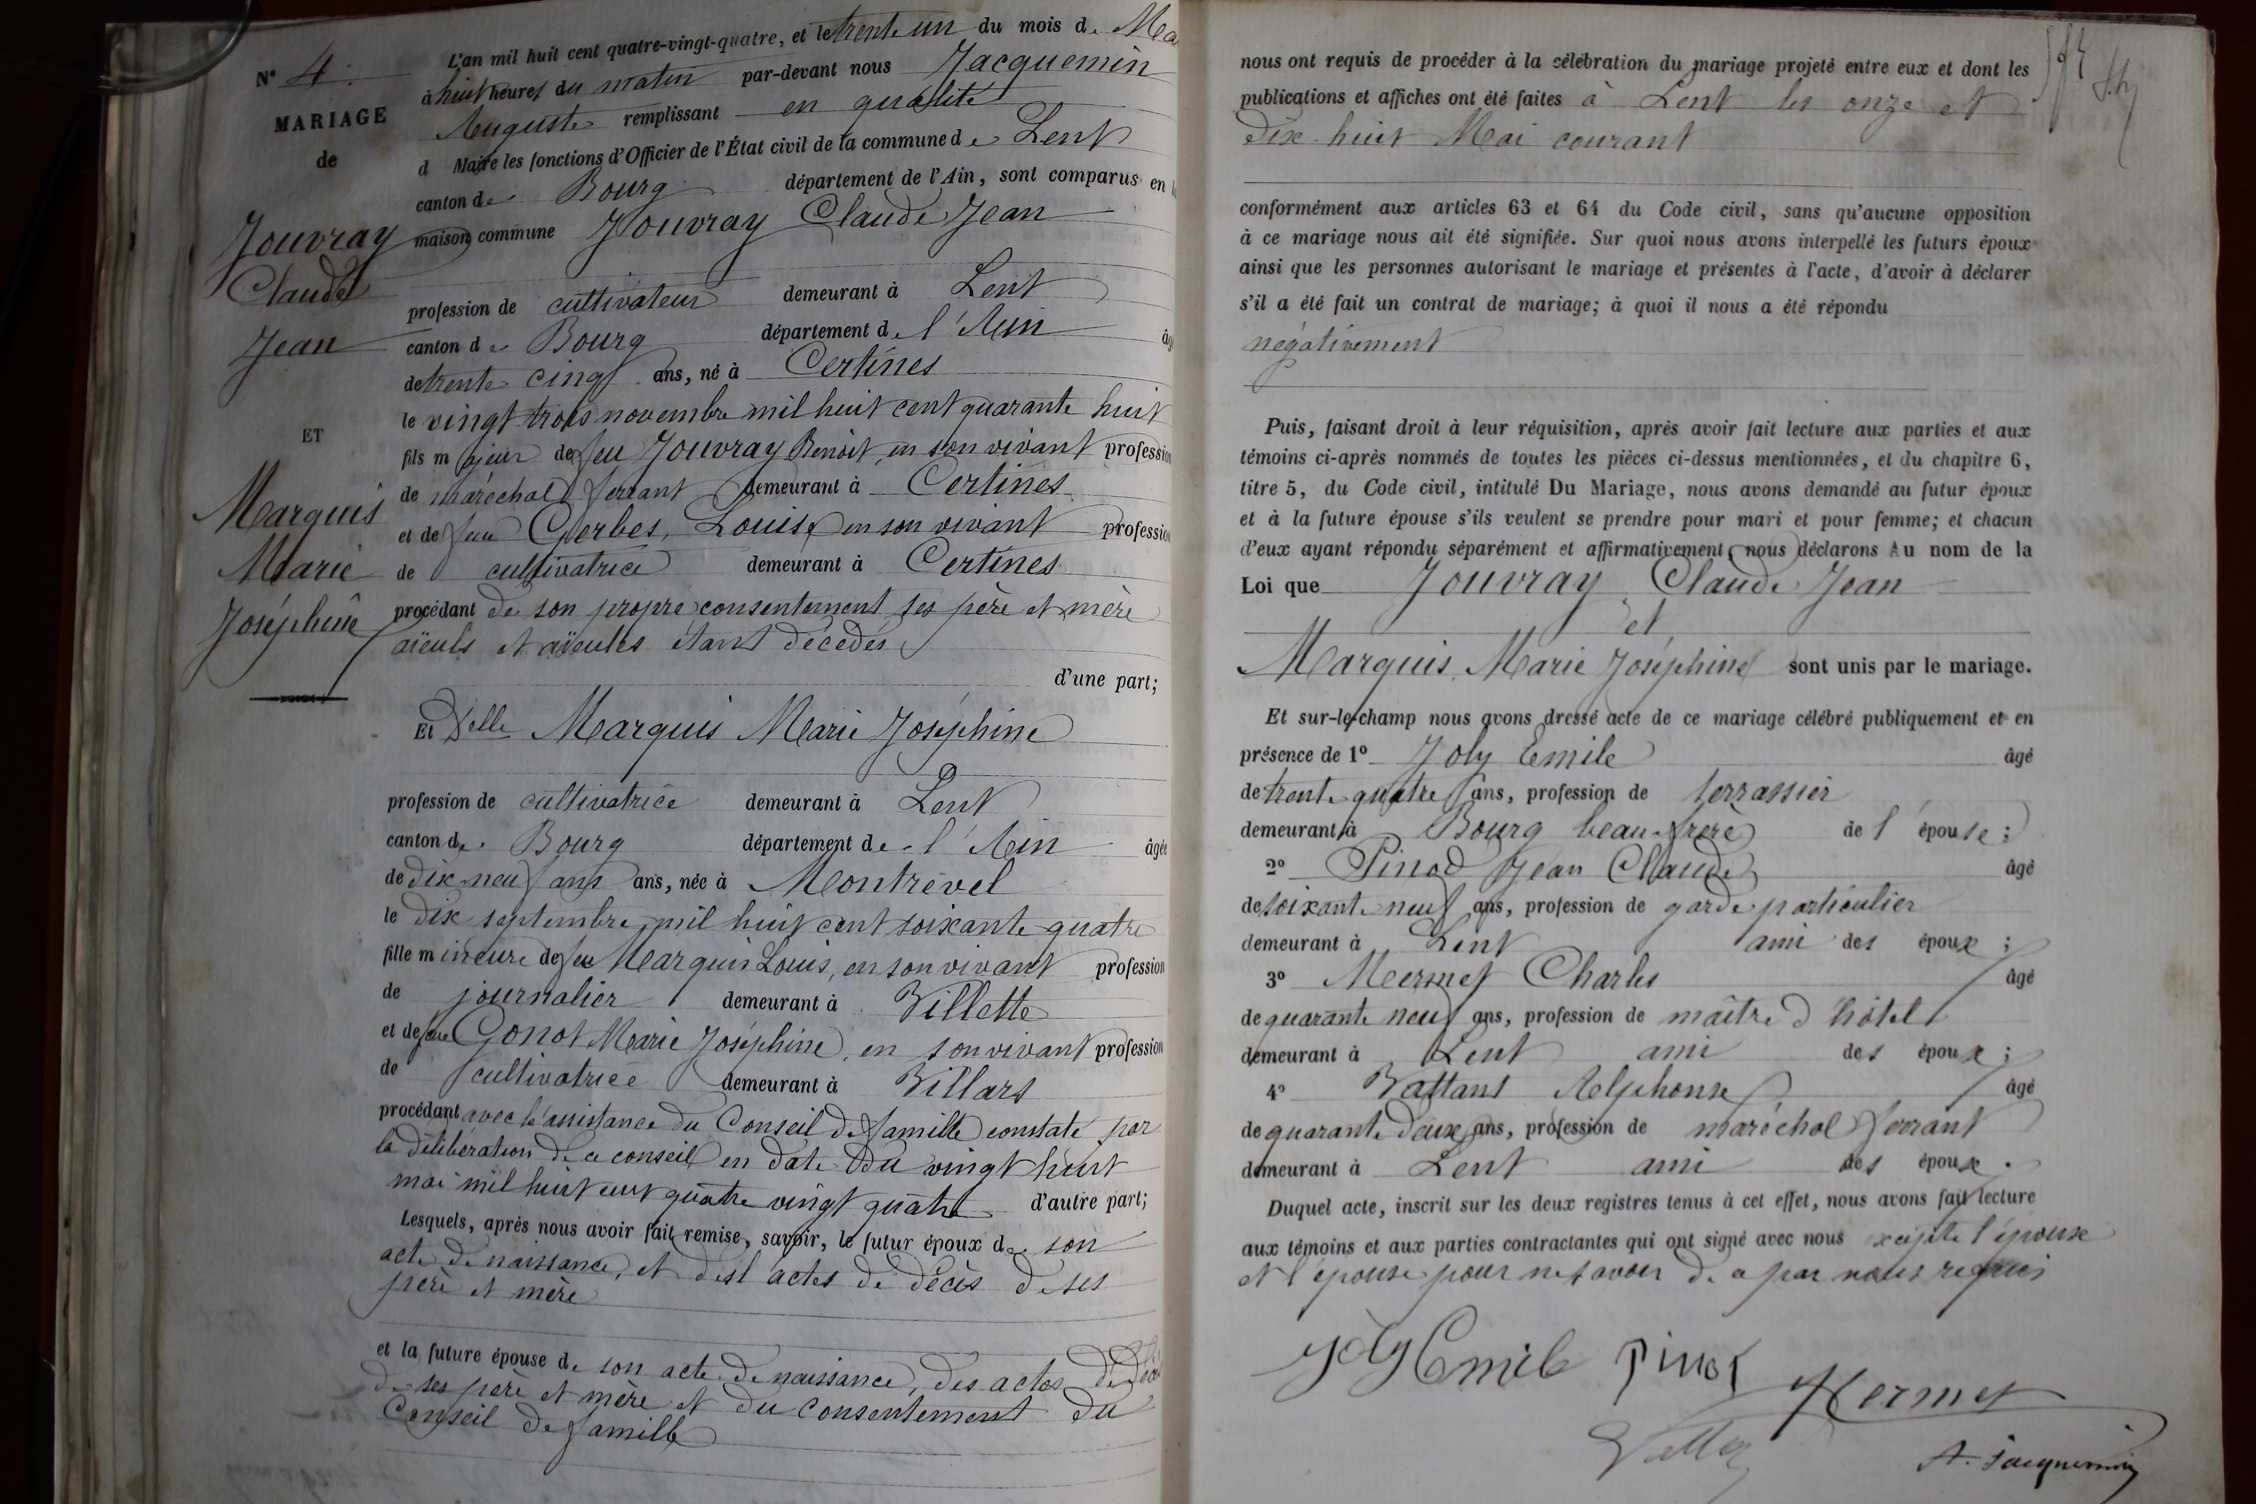 L'an mil huit cent quatre-vingt-quatre, et le trente un du mois de
N° 4.
à huit heures du matin par-devant nous Jacquemin
MARIAGE
Auguste remplissant en qualité
de
d Maire les fonctions d'Officier de l'État civil de la commune de Lent
canton de Bourg département de l'Ain, sont comparus en
Jouvray
Claude
Jean
maison commune Jouvray Claude Jean
profession de cultivateur demeurant à Lent
canton de Bourg département de l'Ain
de trente cinq ans, né à Certines
le vingt trois novembre mil huit cent quarante huit
ET
fils majeur de feu Jouvray Benoit, en son vivant profession
de maréchal ferrant demeurant à Certines
Marquis
Marie
Joséphine
et de feu Gerbes, Louise en son vivant profession
de cultivatrice demeurant à Certines
procédant de son propre consentement ses père et mère
aïeuls et aïeules étant décédés
d'une part;
Et Delle Marquis Marie Joséphine
profession de cultivatrice demeurant à Lent
canton de Bourg département de l'Ain âgée
de dix-neuf ans ans, née à Montrevel
le dix septembre mil huit cent soixante quatre
fille mineure de feu Marquis Louis, en son vivant profession
de journalier demeurant à Villette
et de feue Gonot Marie Joséphine, en son vivant profession
de cultivatrice demeurant à Villars
procédant avec l'assistance du Conseil de famille constaté par
la délibération de ce conseil en date du vingt huit
mai mil huit cent quatre vingt quatre d'autre part;
Lesquels, après nous avoir fait remise, savoir, le futur époux de son
acte de naissance, et des actes de décès de ses
père et mère
et la future épouse de son acte de naissance, des actes de décès
de ses père et mère et du consentement du
Conseil de famille
nous ont requis de procéder à la célébration du mariage projeté entre eux et dont les
publications et affiches ont été faites à Lent les onze et
dix-huit Mai courant
conformément aux articles 63 et 64 du Code civil, sans qu'aucune opposition
à ce mariage nous ait été signifiée. Sur quoi nous avons interpellé les futurs époux
ainsi que les personnes autorisant le mariage et présentes à l'acte, d'avoir à déclarer
s'il a été fait un contrat de mariage; à quoi il nous a été répondu
négativement
Puis, faisant droit à leur réquisition, après avoir fait lecture aux parties et aux
témoins ci-après nommés de toutes les pièces ci-dessus mentionnées, et du chapitre 6,
titre 5, du Code civil, intitulé Du Mariage, nous avons demandé au futur époux
et à la future épouse s'ils veulent se prendre pour mari et pour femme; et chacun
d'eux ayant répondu séparément et affirmativement, nous déclarons Au nom de la
Loi que Jouvray Claude Jean
et
Marquis Marie Joséphine sont unis par le mariage.
Et sur-le-champ nous avons dressé acte de ce mariage célébré publiquement et en
présence de 1° Joly Emile âgé
de trente quatre ans, profession de terrassier
demeurant à Bourg beau-frère de l'épouse;
2° Pinod Jean Claude âgé
de soixante neuf ans, profession de garde particulier
demeurant à Lent ami des époux;
3° Mermet Charles âgé
de quarante neuf ans, profession de maître d'hôtel
demeurant à Lent ami des époux;
4° Vattans Alphonse âgé
de quarante deux ans, profession de maréchal ferrant
demeurant à Lent ami des époux.
Duquel acte, inscrit sur les deux registres tenus à cet effet, nous avons fait lecture
aux témoins et aux parties contractantes qui ont signé avec nous excepté l'époux
et l'épouse pour ne savoir de ce par nous requis
Joly Emile Pinod
Mermet
A. Jacquemin